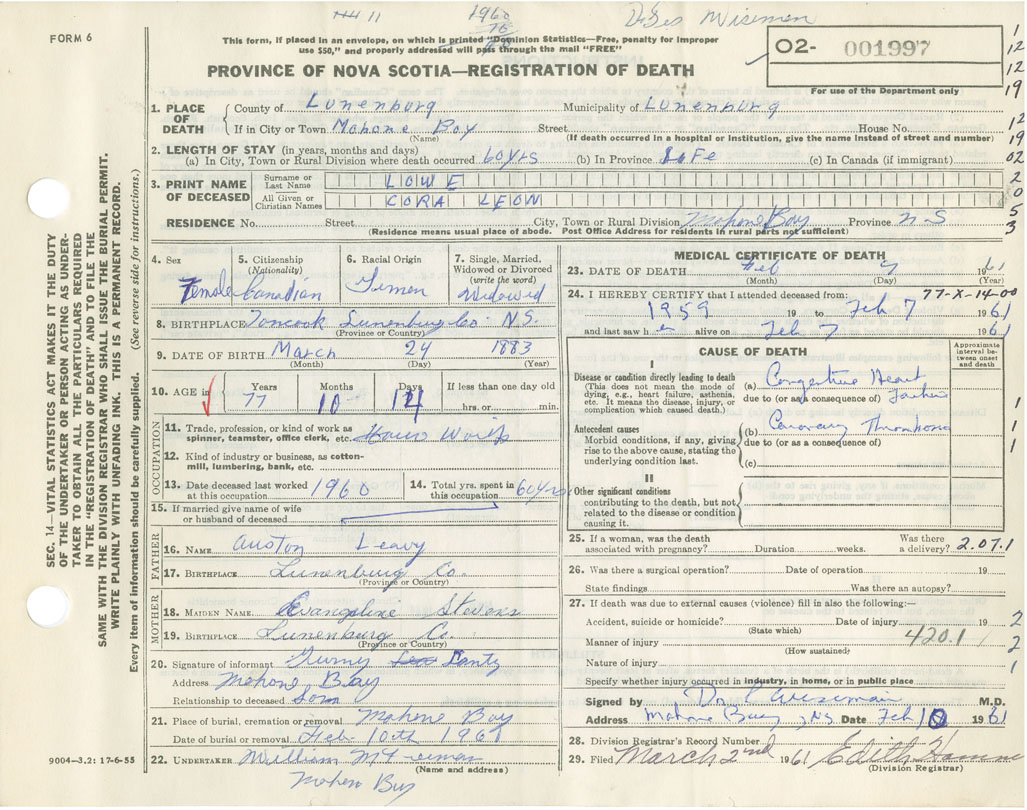 1960
FORM 6
This form, if placed in an envelope, on which is printed "Dominion Statistics—Free, penalty for improper
use $50," and properly addressed will pass through the mail "FREE"
O2- 001997
For use of the Department only
PROVINCE OF NOVA SCOTIA—REGISTRATION OF DEATH
1. PLACE OF DEATH County of Lunenburg Municipality of Lunenburg
If in City or Town Mahone Bay Street House No.
(Name) (If death occurred in a hospital or institution, give the name instead of street and number)
2. LENGTH OF STAY (in years, months and days)
(a) In City, Town or Rural Division where death occurred 60 yrs (b) In Province Life (c) In Canada (if immigrant)
3. PRINT NAME OF DECEASED
Surname or Last Name LOWE
All Given or Christian Names CORA LEON
RESIDENCE No. Street City, Town or Rural Division Mahone Bay Province NS
(Residence means usual place of abode. Post Office Address for residents in rural parts not sufficient)
4. Sex Female
5. Citizenship (Nationality) Canadian
6. Racial Origin
7. Single, Married, Widowed or Divorced (write the word) Widowed
8. BIRTHPLACE Lunenburg Co. N.S.
(Province or Country)
9. DATE OF BIRTH March 24 1883
(Month) (Day) (Year)
10. AGE in Years Months Days If less than one day old
77 10 14 hrs. or min.
OCCUPATION
11. Trade, profession, or kind of work as spinner, teamster, office clerk, etc. House Wife
12. Kind of industry or business, as cotton-mill, lumbering, bank, etc.
13. Date deceased last worked at this occupation 1960
14. Total yrs. spent in this occupation 60 yrs
15. If married give name of wife or husband of deceased
FATHER
16. NAME Auston Leavy
17. BIRTHPLACE Lunenburg Co.
(Province or Country)
MOTHER
18. MAIDEN NAME Evangeline Stevens
19. BIRTHPLACE Lunenburg Co.
(Province or Country)
20. Signature of informant
Address Mahone Bay
Relationship to deceased Son
21. Place of burial, cremation or removal Mahone Bay
Date of burial or removal Feb. 10th 1961
22. UNDERTAKER William
(Name and address)
Mahone Bay
MEDICAL CERTIFICATE OF DEATH
23. DATE OF DEATH Feb 7 1961
(Month) (Day) (Year)
24. I HEREBY CERTIFY that I attended deceased from: 77-X-14-00
1959 19 to Feb 7 1961
and last saw her alive on Feb 7 1961
CAUSE OF DEATH
Approximate interval between onset and death
I
Disease or condition directly leading to death
(This does not mean the mode of dying, e.g., heart failure, asthenia, etc. It means the disease, injury, or complication which caused death.)
(a) Congestive Heart Failure
due to (or as a consequence of)
Antecedent causes
Morbid conditions, if any, giving rise to the above cause, stating the underlying condition last.
(b) Coronary Thrombosis
due to (or as a consequence of)
(c)
II
Other significant conditions
contributing to the death, but not related to the disease or condition causing it.
25. If a woman, was the death associated with pregnancy? Duration weeks. Was there a delivery? 2.07.1
26. Was there a surgical operation? Date of operation 19
State findings Was there an autopsy?
27. If death was due to external causes (violence) fill in also the following:—
Accident, suicide or homicide? Date of injury 19
(State which)
Manner of injury 420.1
(How sustained)
Nature of injury
Specify whether injury occurred in industry, in home, or in public place
Signed by Dr. Wiseman M.D.
Address Mahone Bay, NS Date Feb 10 1961
28. Division Registrar's Record Number
29. Filed March 2nd 1961 Edith
(Division Registrar)
SEC. 14—VITAL STATISTICS ACT MAKES IT THE DUTY
OF THE UNDERTAKER OR PERSON ACTING AS UNDER-
TAKER TO OBTAIN ALL THE PARTICULARS REQUIRED
IN THE "REGISTRATION OF DEATH" AND TO FILE THE
SAME WITH THE DIVISION REGISTRAR WHO SHALL ISSUE THE BURIAL PERMIT.
WRITE PLAINLY WITH UNFADING INK. THIS IS A PERMANENT RECORD.
Every item of information should be carefully supplied. (See reverse side for instructions.)
9004—3.2: 17-6-55
1
12
12
19
12
19
02
2
0
5
3
1
1
1
2
2
1